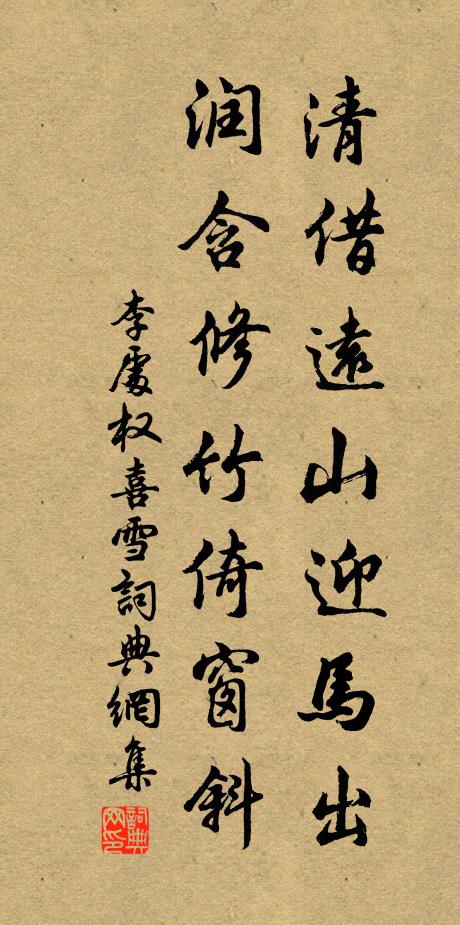 清借遠山迎馬出
润含修竹倚窗斜
李處权喜雪詞典網集
詞典網印